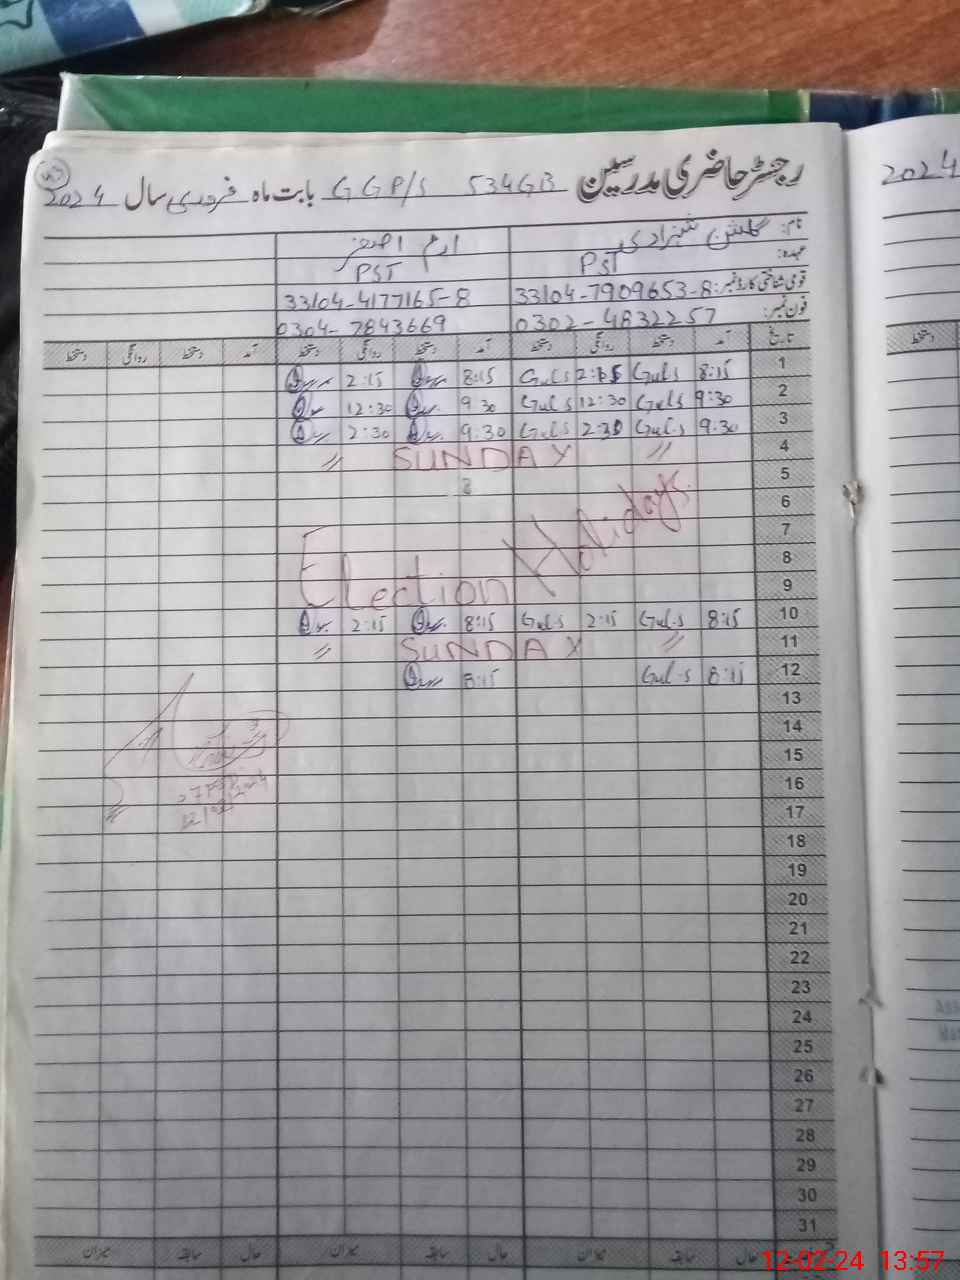 رجسٹر حاضری مدرسین GGP/S 534GB بابت ماہ فروری سال 2024
2024
نام: گلشن شہزادی ارم اصغر
عہدہ: PST PST
قومی شناختی کارڈ نمبر: 33104-7909653-8 33104-4177165-8
فون نمبر: 0302-4832257 0304-7843669
تاریخ آمد دستخط روانگی دستخط آمد دستخط روانگی دستخط آمد دستخط روانگی دستخط
دستخط
1 8:15 Guls 2:15 Guls 8:15 2:15
2 9:30 Guls 12:30 Guls 9 30 12:30
3 9.30 Gul.s 2:30 Guls 9.30 2:30
4 // SUNDAY //
5 8
6
7
8
9
Election Holidays.
10 8:15 Gul.s 2:15 Gul.s 8:15 2:15
11 // SUNDAY //
12 8:15 Gul.s 8:15
13
14
15
16
17
18
19
20
21
22
23
24
25
26
27
28
29
30
31
حال سابقہ میزان حال سابقہ میزان حال سابقہ میزان
12-02-24 13:57